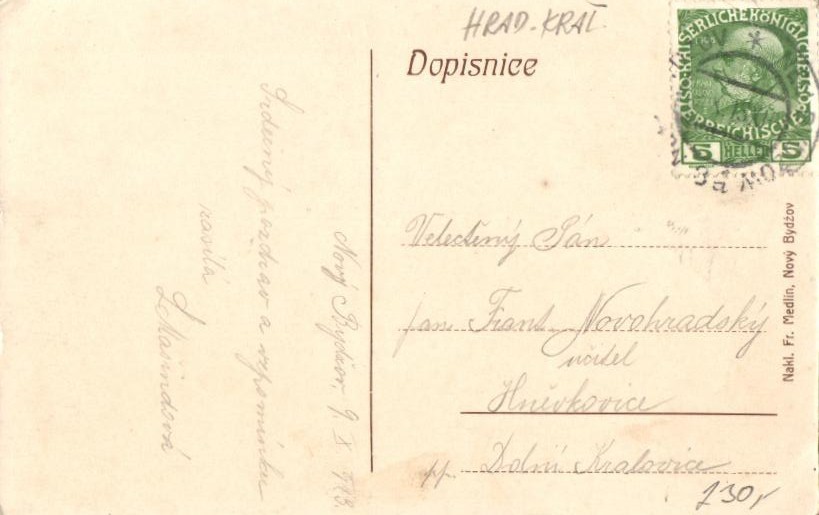 HRAD-KRAL
Dopisnice
KAISERLICHE KÖNIGLICHE ÖSTERREICHISCHE POST
5 HELLER 5
Nový Bydžov, 9. X.
Srdečný pozdrav a vzpomínku
zasílá
Velectěný Pán
pan Frant. Novohradský
učitel
Hněvkovice
pp. Dolní Kralovice
130,-
Nakl. Fr. Medlín, Nový Bydžov